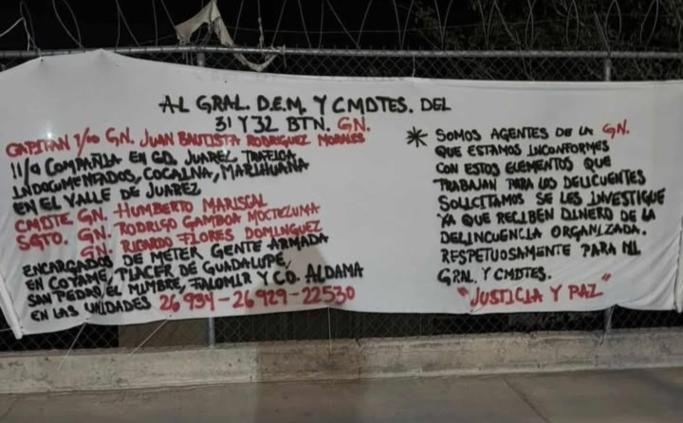 AL GRAL. D.E.M. Y CMDTES. DEL
31 Y 32 BTN. GN.
CAPITAN 1/00 GN. JUAN BAUTISTA RODRIGUEZ MORALES
11/a COMPAÑIA EN CD. JUAREZ TRAFICA
INDOCUMENTADOS, COCAINA, MARIHUANA
EN EL VALLE DE JUAREZ
CMDTE GN. HUMBERTO MARISCAL
SGTO. GN. RODRIGO GAMBOA MOCTEZUMA
GN. RICARDO FLORES DOMINGUEZ
ENCARGADOS DE METER GENTE ARMADA
EN COYAME, PLACER DE GUADALUPE,
SAN PEDRO, EL MIMBRE, FALOMIR Y CD. ALDAMA
EN LAS UNIDADES 26934-26929-22530
* SOMOS AGENTES DE LA GN.
QUE ESTAMOS INCONFORMES
CON ESTOS ELEMENTOS QUE
TRABAJAN PARA LOS DELICUENTES
SOLICITAMOS SE LES INVESTIGUE
YA QUE RECIBEN DINERO DE LA
DELINCUENCIA ORGANIZADA.
RESPETUOSAMENTE PARA MI
GRAL. Y CMDTES.
"JUSTICIA Y PAZ"